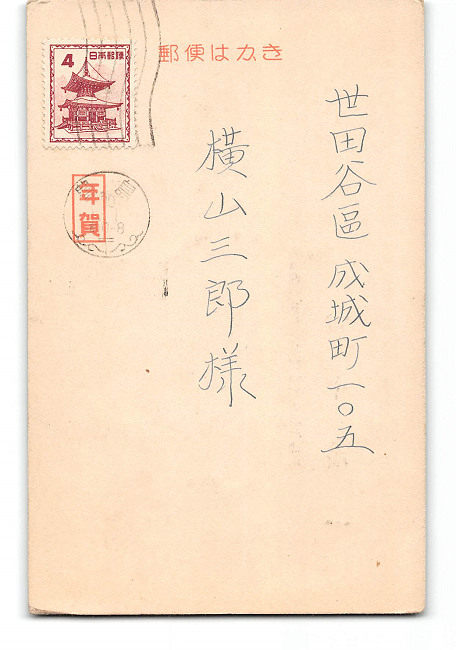 郵便はがき
4 日本郵便
年賀
世田谷區成城町一〇五
横山三郎様